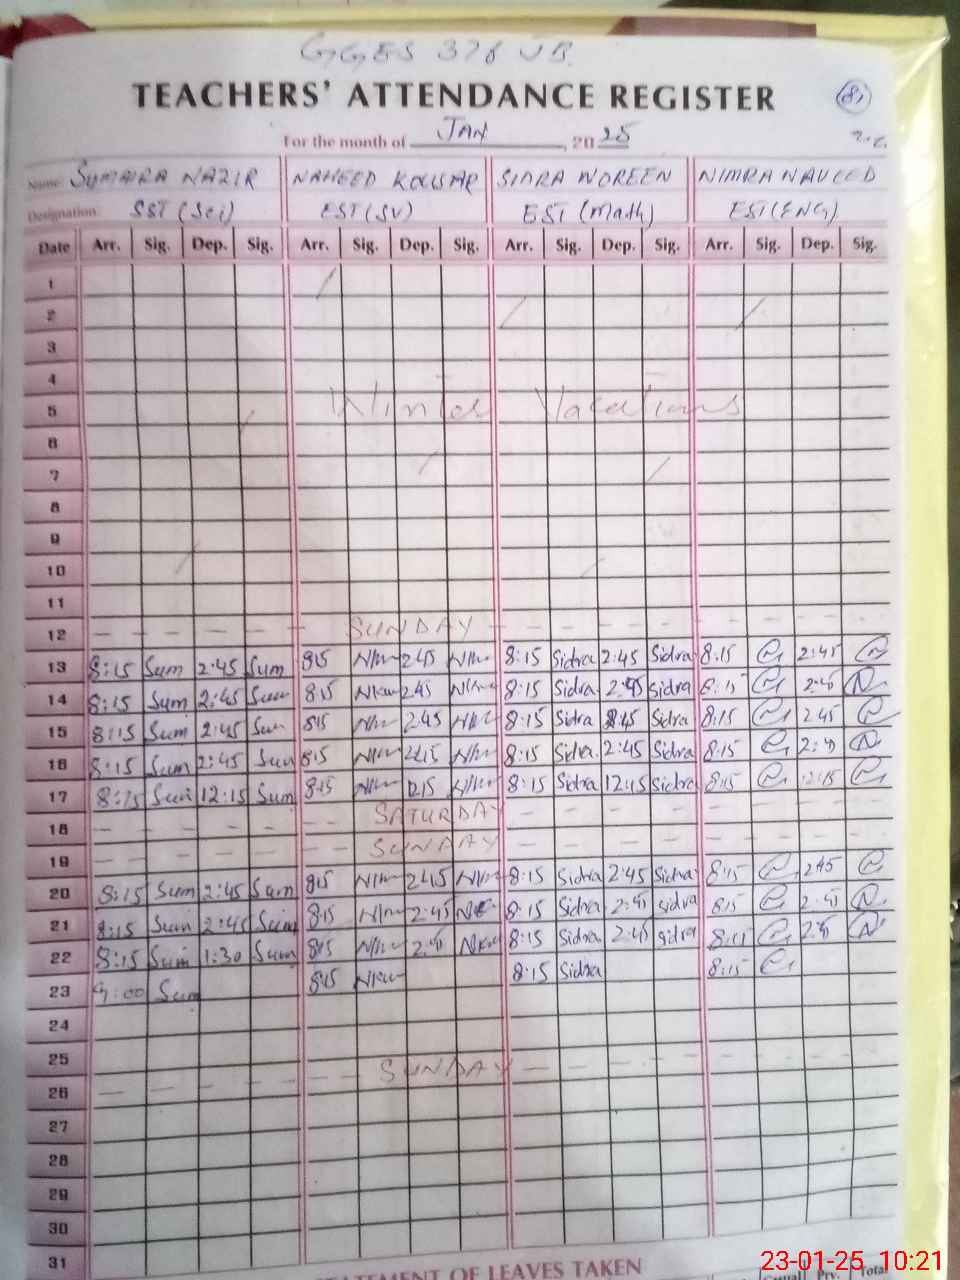 GGES 376 JB.
TEACHERS' ATTENDANCE REGISTER
81
For the month of JAN, 2025
Name: SUMAIRA NAZIR NAHEED KOUSAR SIDRA NOREEN NIMRA NAVEED
Designation: SST (Sci) EST (SV) EST (Math) EST (ENG)
Date Arr. Sig. Dep. Sig. Arr. Sig. Dep. Sig. Arr. Sig. Dep. Sig. Arr. Sig. Dep. Sig.
1
2
3
4
5 Winter Vacations
6
7
8
9
10
11
12 SUNDAY
13 8:15 Sum 2:45 Sum 8:15 2:45 8:15 Sidra 2:45 Sidra 8:15 2:45
14 8:15 Sum 2:45 Sum 8:15 2:45 8:15 Sidra 2:45 Sidra 8:15 2:45
15 8:15 Sum 2:45 Sum 8:15 2:45 8:15 Sidra 2:45 Sidra 8:15 2:45
16 8:15 Sum 2:45 Sum 8:15 2:45 8:15 Sidra 2:45 Sidra 8:15
17 8:15 Sum 12:15 Sum 8:15 12:15 8:15 Sidra 12:15 Sidra 8:15 12:15
18 SATURDAY
19 SUNDAY
20 8:15 Sum 2:45 Sum 8:15 2:45 8:15 Sidra 2:45 Sidra 8:15 2:45
21 8:15 Sum 2:45 Sum 8:15 2:45 8:15 Sidra 2:45 Sidra 8:15 2:45
22 8:15 Sum 1:30 Sum 8:15 8:15 Sidra 2:45 Sidra 8:15 2:45
23 9:00 Sum 8:15 8:15 Sidra 8:15
24
25
26 SUNDAY
27
28
29
30
31
STATEMENT OF LEAVES TAKEN
Total
23-01-25 10:21